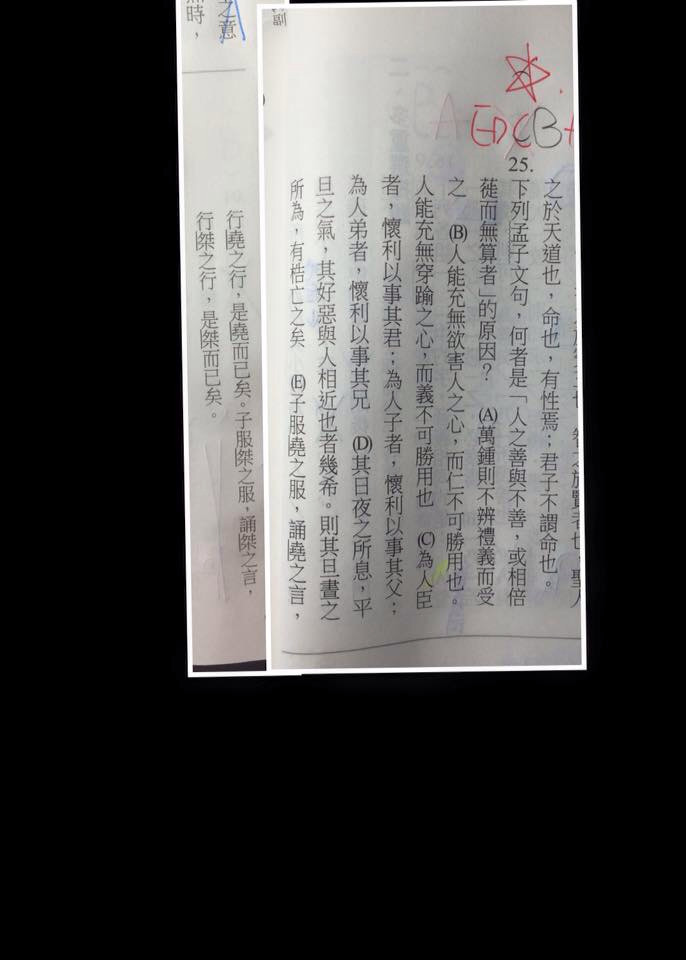 EDCB
25.
智之於賢者也，聖人
之於天道也，命也，有性焉；君子不謂命也。
下列孟子文句，何者是「人之善與不善，或相倍
蓰而無算者」的原因？ (A)萬鍾則不辨禮義而受
之 (B)人能充無欲害人之心，而仁不可勝用也。
人能充無穿踰之心，而義不可勝用也 (C)為人臣
者，懷利以事其君；為人子者，懷利以事其父；
為人弟者，懷利以事其兄 (D)其日夜之所息，平
旦之氣，其好惡與人相近也者幾希。則其旦晝之
所為，有梏亡之矣 (E)子服堯之服，誦堯之言，
之意
時，
行堯之行，是堯而已矣。子服桀之服，誦桀之言，
行桀之行，是桀而已矣。